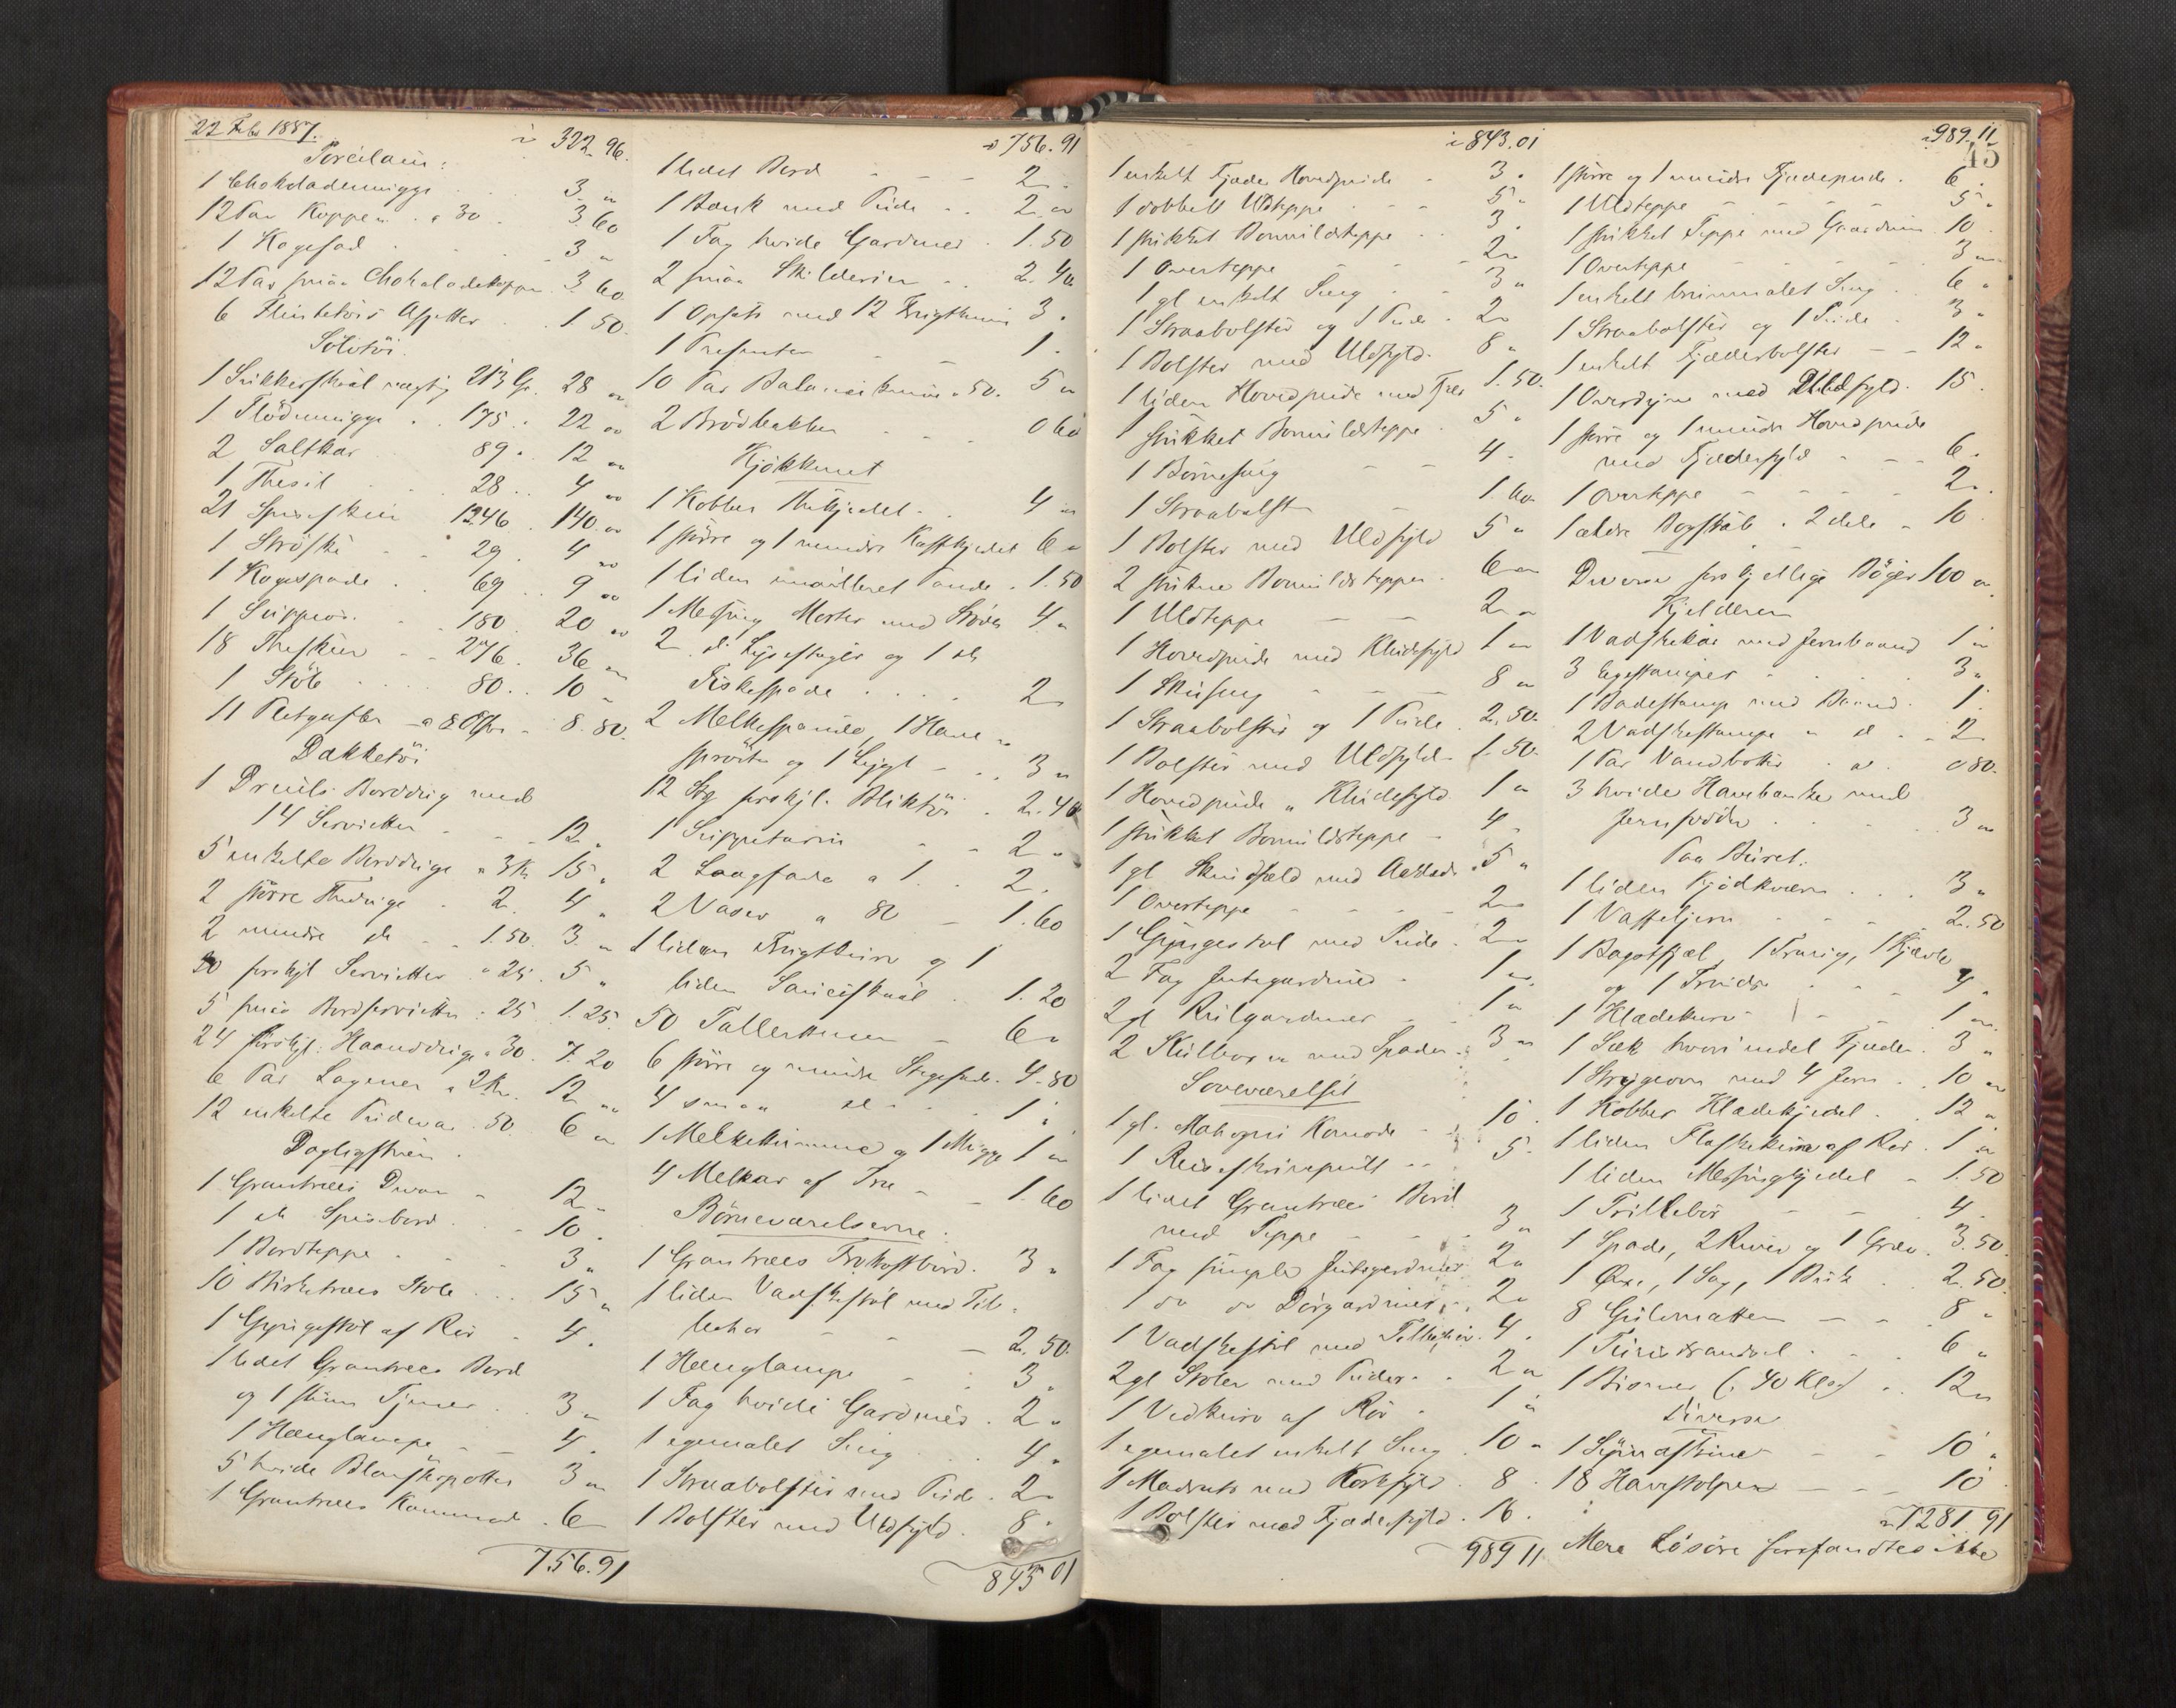 22 Feb 1887.
i 322.96.
Porcilain:
1 Chokolademugge 3 "
12 Par Kopper a 30. 3.60
1 Kagefad 3 "
12 Par smaa Chokoladekopper 3.60.
6 Flintetöis Asjetter 1.50.
Sölvtöi.
1 Sukkerskaal vægtig 213 Gr. 28 "
1 Flödemugge 175. 22 "
2 Saltkar 89. 12 "
1 Thesil 28. 4 "
21 Spiseskeer 1246. 140 "
1 Ströske 29. 4 "
1 Kagespade 69. 9 "
1 Suppeös. 180. 20 "
18 Theskeer 276. 36 "
1 Stöb 80. 10 "
11 Pletgafler a 80 Öre 8.80.
Dækketöi
1 Dreils Borddug med
14 Servietter 12 "
5 enkelte Bordduge a 3 Kr 15 "
2 större Theduge 2. 4 "
2 mindre do 1.50. 3 "
20 forskjl Servietter a 25. 5 "
5 smaa Bordservietter a 25 1.25.
24 forskjl: Haandduge a 30. 7.20
6 Par Lagener a 2 Kr. 12 "
12 enkelte Pudevar 50. 6 "
Dagligstuen.
1 Grantræes Divan 12 "
1 do Spisebord 10.
1 Bordteppe 3 "
10 Birketræes Stole 15 "
1 Gyngestol af Rör 4.
1 lidet Grantræes Bord
og 1 stum Tjener 3 "
1 Hænglampe 4.
5 hvide Blomsterpotter 3 "
1 Grantræes Kommode 6
756.91
" 756.91
1 lidet Bord 2 "
1 Bænk med Pude 2 "
1 Fag hvide Gardiner 1.50
2 smaa Skilderier 2.40
1 Opsats med 12 Frugtknive 3.
1 Presenter 1.
10 Par Balanceknive a 50. 5 "
2 Brödbakker 0 60
Kjökkenet
1 Kobber Thekjedel 4 "
1 större og 1 mindre Kaffekjedel 6 "
1 liden emailleret Pande 1.50
1 Messing Morter med Stöder 4 "
2 do Lysestager og 1 do
Fiskespade 2
2 Melkespande, 1 Have
spröite og 1 Lygt 3 "
12 Stk forskjl. Bliktöi 2.40
1 Suppeterin 2 "
2 Laagfade a 1. 2.
2 Vaser a 80 1.60
1 liden Frugtkurv og 1
liden Sauceskaal 1.20
50 Tallerkener 6 "
6 större og mindre Stegefade. 4.80
4 smaa do 1 "
1 Melketumme og 1 Mugge 1 "
4 Melkar af Træ 1.60
Börneværelserne:
1 Grantræes Frokostbord. 3 "
1 liden Vadskestol med Til-
behör 2.50.
1 Hænglampe 3.
1 Fag hvide Gardiner. 2 "
1 egemalet Seng 4 "
1 Straabolster med Pude. 2 "
1 Bolster med Uldfyld. 8 "
843 01
i 843.01
1 enkelt Fjæder Hovedpude 3.
1 dobbelt Uldteppe 5 "
1 stikket Bomuldsteppe 3.
1 Overteppe 2 "
1 gl enkelt Seng 3 "
1 Straabolster og 1 Pude 2 "
1 Bolster med Uldfyld 8 "
1 liden Hovedpude med Fjær 1.50.
1 stikket Bomuldsteppe 5 "
1 Börneseng 4 "
1 Straabolst 1.60.
1 Bolster med Uldfyld 5 "
2 stikkne Bomuldstepper 6 "
1 Uldteppe 2 "
1 Hovedpude med Klidefyld 1 "
1 Skuseng 8 "
1 Straabolster og 1 Pude 2.50.
1 Bolster med Uldfyld 1.50.
1 Hovedpude " Klidefyld 1 "
1 stikket Bomuldsteppe 4 "
1 gl Skindfæld med Aaklæde 5 "
1 Overteppe 2 "
1 Gyngestol med Pude 2 "
2 Fag Jutegardiner 1 "
2 gl Rulgardiner 1 "
2 Kulboxer med Spader 3 "
Soveværelset
1 gl. Mahogni Komode 10.
1 Reiseskrivepult 5.
1 lidet Grantræes Bord
med Teppe 3 "
1 Fag simple Jutegardiner 2 "
1 do do Dörgardiner 2 "
1 Vadskestol med Tilbehör. 4.
2 gl Stoler med Puder 2 "
1 Vedkurv af Rör 1 "
1 egemalet enkelt Seng 10 "
1 Madrats med Korkfyld 8.
1 Bolster med Fjæderfyld. 16.
989 11
i 989.11
45
1 större og 1 mindre Fjæderpude. 6.
1 Uldteppe 5 "
1 stikket Teppe med Gaasduun 10.
1 Overteppe 3 "
1 enkelt brunmalet Seng 6 "
1 Straabolster og 1 Pude 3 "
1 enkelt Fjæderbolster 12 "
1 Overdyne med Uldfyld. 15.
1 större og 1 mindre Hovedpude
med Fjæderfyld 6 "
1 Overteppe 2 "
1 ældre Bogskab i 2 dele 10
Diverse forskjellige Böger 100 "
Kjelderen
1 Vadskekar med Jernbaand 1 "
3 Egestamper 3 "
1 Badestamp med Baand. 1.
2 Vadskestampe " do 2
1 Par Vandbötter " do 0 80.
3 hvide Havebænke med
Jernfödder 3 "
Paa Buret.
1 liden Kjödkværn 3 "
1 Vaffeljern 2.50
1 Bagstfjæl, 1 Traug, 1 Kjævle
og 1 Trindse 4 "
1 Klædekurv 1 "
1 Sæk hvori endel Fjæder. 3 "
1 Strygeovn med 4 Jern 10 "
1 Kobber Klædekjedel 12 "
1 liden Flaskekurv af Rör. 1 "
1 liden Messingkjedel 1.50
1 Trillebör 4.
1 Spade, 2 River og 1 Græv 3.50.
1 Öxe, 1 Sag, 1 Bütte 2.50.
8 Gulvmatter 8 "
1 8 Havestolper 10
1 Bismer (: 40 Klgr) 12 "
Diverse
1 Symaskine 10 "
" 1281 91
Mere Lösöre forefandtes ikke